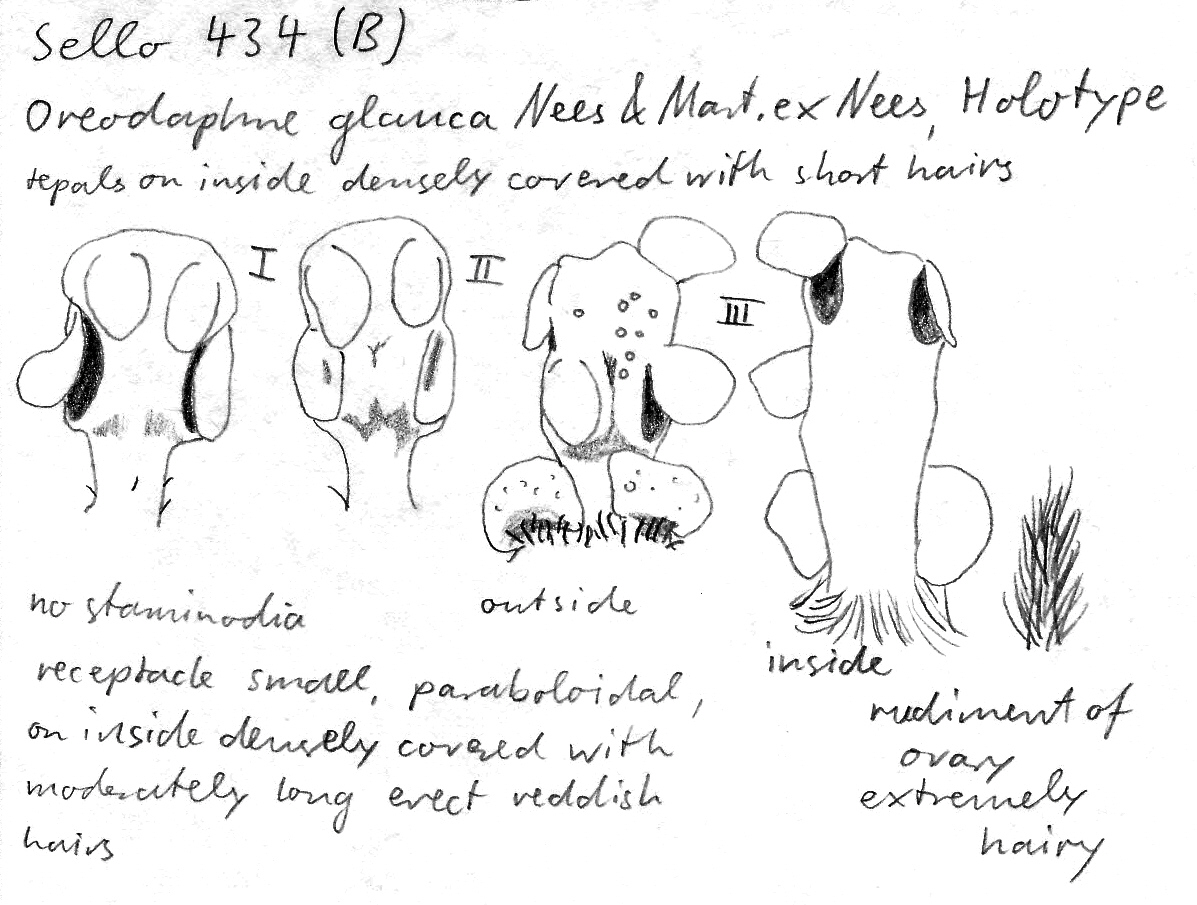 Sello 434 (B)
Oreodaphne glauca Nees & Mart. ex Nees, Holotype
tepals on inside densely covered with short hairs
I
II
III
no staminodia
outside
inside
receptacle small, paraboloidal,
on inside densely covered with
moderately long erect reddish
hairs
rudiment of
ovary
extremely
hairy